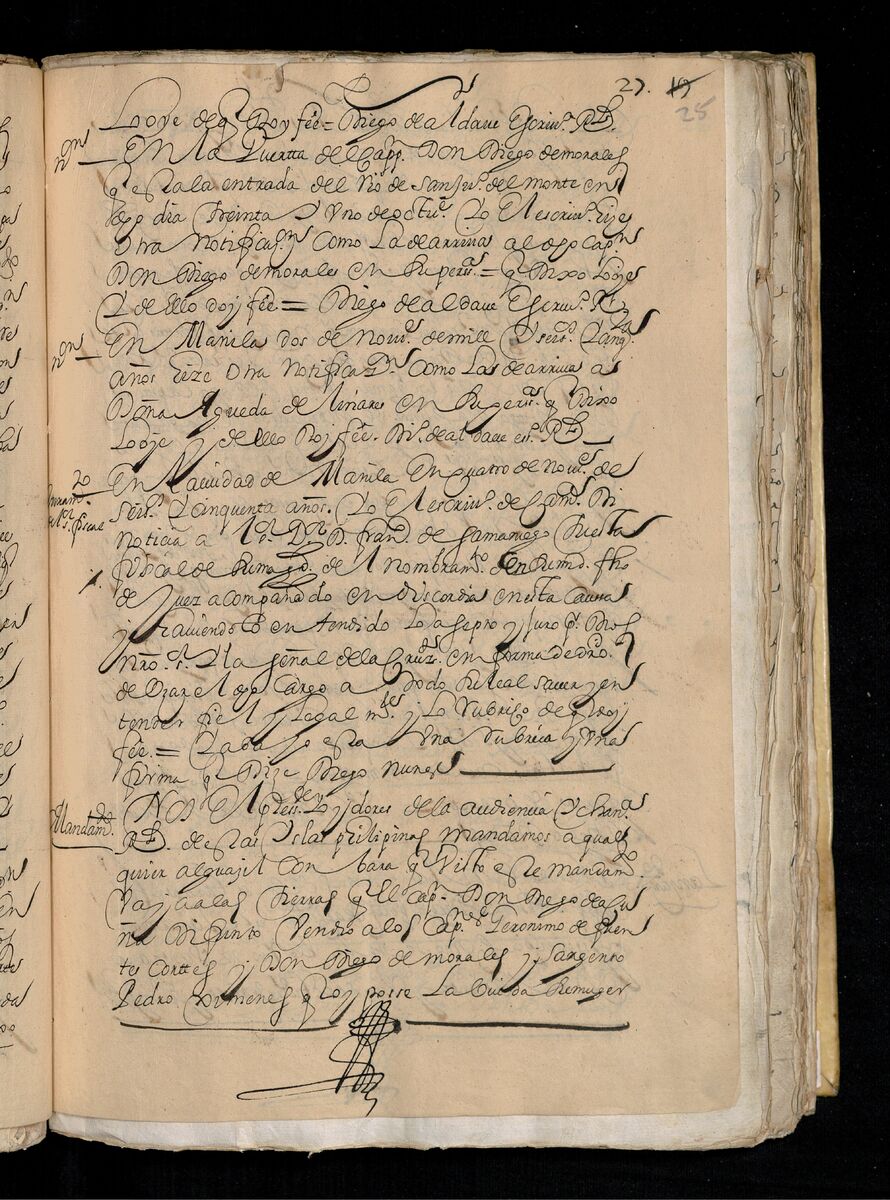 27. 19
25
Lo oye de q Doy fee = Diego de aldave Escriv.º Rl.
n.on
En la Huertta del Capp.n Don Diego de morales
q esta a la entrada del Rio de San Ju.º del monte en el
dho dia treinta y Uno de octu.e Yo El escriv.º hize
Otra Notificas.on Como La de arriva al dho cap.n
Don Diego de morales en su pers.a = q Dixo Lo oye
y de ello doy fee = Diego de aldave Escriv.º Rl.
n.on
En Manila dos de Nov.e de mill y seis.os y cinq.ta
años hize otra Notificaz.on como Las de arriva a
Doña Agueda de liñares en su pers.a q Dixo
Lo oye y de ello Doy fee. Di.º de aldave es.º Rl.
Juram.to
del s.or fiscal
En la ciudad de Manila En quatro de nov.e de
seis.os y cinquenta años. Yo El escriv.º de cam.a Di
noticia a l s.or D.or D. fran.co de samaniego Cuesta
fiscal de su mag.d del nombram.to en su md. fho
de Juez acompañado en discordia en esta causa
y haviendolo entendido Lo asepto y juro p.r Dios
nro s.r y la señal de la Cruz en forma de dro.
de Uzar el dho Cargo a todo su leal saver y en
tender fiel y legalm.te y lo rubrico de q doy
fee = y abajo esta Una rubrica y Una
firma q Dize Diego Nunes
Mandam.to
Nos El press.te y oydores de la audiencia y chan.a
Rl. de estas yslas philipinas mandamos a qual
quier alguajil con bara q Visto este mandam.to
Vaya a las tierras q El Cap.n Don Diego de acu
ña Difunto Vendio a los Cap.nes Geronimo de fuen
tes Corttes y Don Diego de morales y sargento
Pedro Ximenes q Oy posse La Viuda su muger